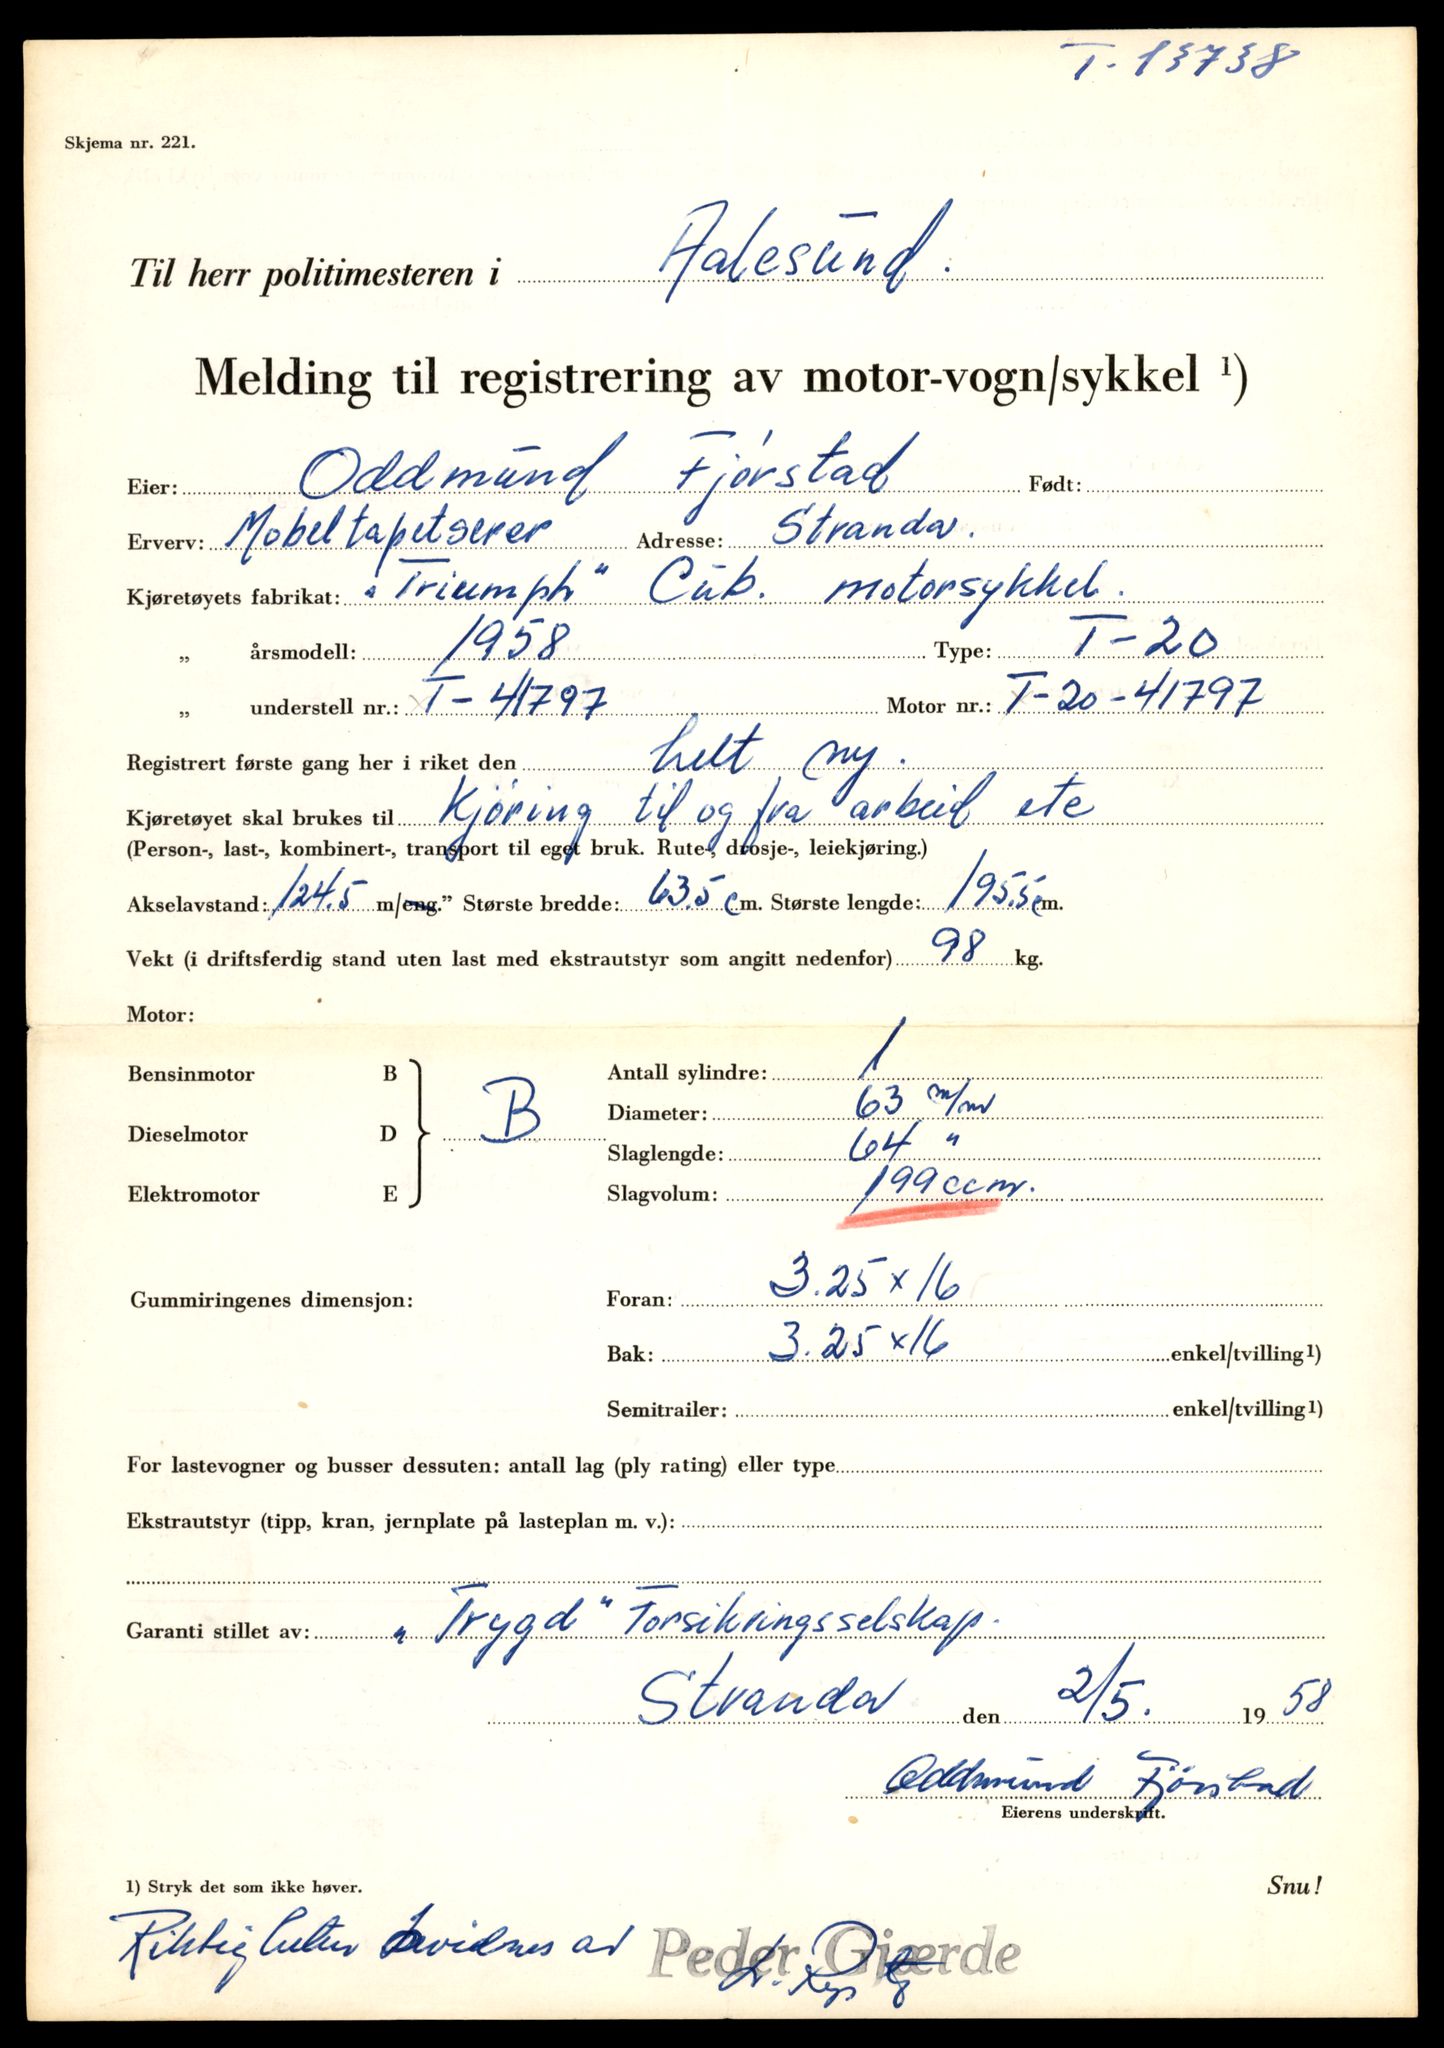 T. 13738
Skjema nr. 221.
Til herr politimesteren i Aalesund.
Melding til registrering av motor-vogn/sykkel ¹)
Eier: Oddmund Fjørstad Født:
Erverv: Møbeltapetserer Adresse: Stranda.
Kjøretøyets fabrikat: "Triumph" Cub. motorsykkel.
„ årsmodell: 1958 Type: T-20
„ understell nr.: T-41797 Motor nr.: T-20-41797
Registrert første gang her i riket den helt ny.
Kjøretøyet skal brukes til Kjøring til og fra arbeid etc
(Person-, last-, kombinert-, transport til eget bruk. Rute-, drosje-, leiekjøring.)
Akselavstand: 124.5 m/eng.” Største bredde: 63.5 cm. Største lengde: 195.5 cm.
Vekt (i driftsferdig stand uten last med ekstrautstyr som angitt nedenfor) 98 kg.
Motor:
Bensinmotor B
Dieselmotor D
Elektromotor E
B
Antall sylindre: 1
Diameter: 63 m/m
Slaglengde: 64 "
Slagvolum: 199 ccm.
Gummiringenes dimensjon: Foran: 3.25 x 16
Bak: 3.25 x 16 enkel/tvilling¹)
Semitrailer: enkel/tvilling¹)
For lastevogner og busser dessuten: antall lag (ply rating) eller type
Ekstrautstyr (tipp, kran, jernplate på lasteplan m. v.):
Garanti stillet av: "Trygd" Forsikringsselskap.
Stranda den 2/5. 1958
Oddmund Fjørstad
Eierens underskrift.
1) Stryk det som ikke høver.
Snu!
Riktigheten bevidnes av Peder Gjærde